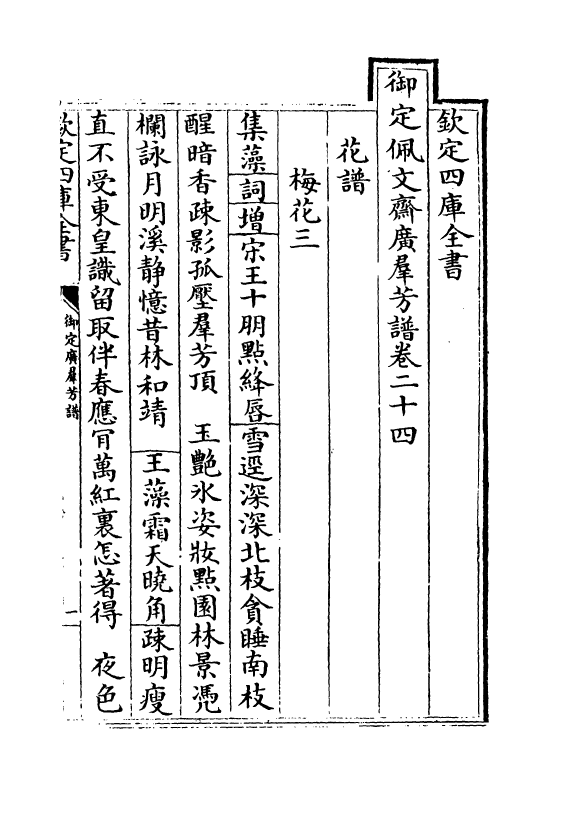 欽定四庫全書
御定佩文齋廣羣芳譜卷二十四
花譜
梅花三
集藻詞增宋王十朋點絳唇雪逕深深北枝貪睡南枝
醒暗香疎影孤壓羣芳頂　玉艷氷姿妝點園林景凭
欄詠月明溪静憶昔林和靖　王藻霜天曉角疎明瘦
直不受東皇識留取伴春應肎萬紅裏怎著得　夜色
欽定四庫全書
御定廣羣芳譜
一